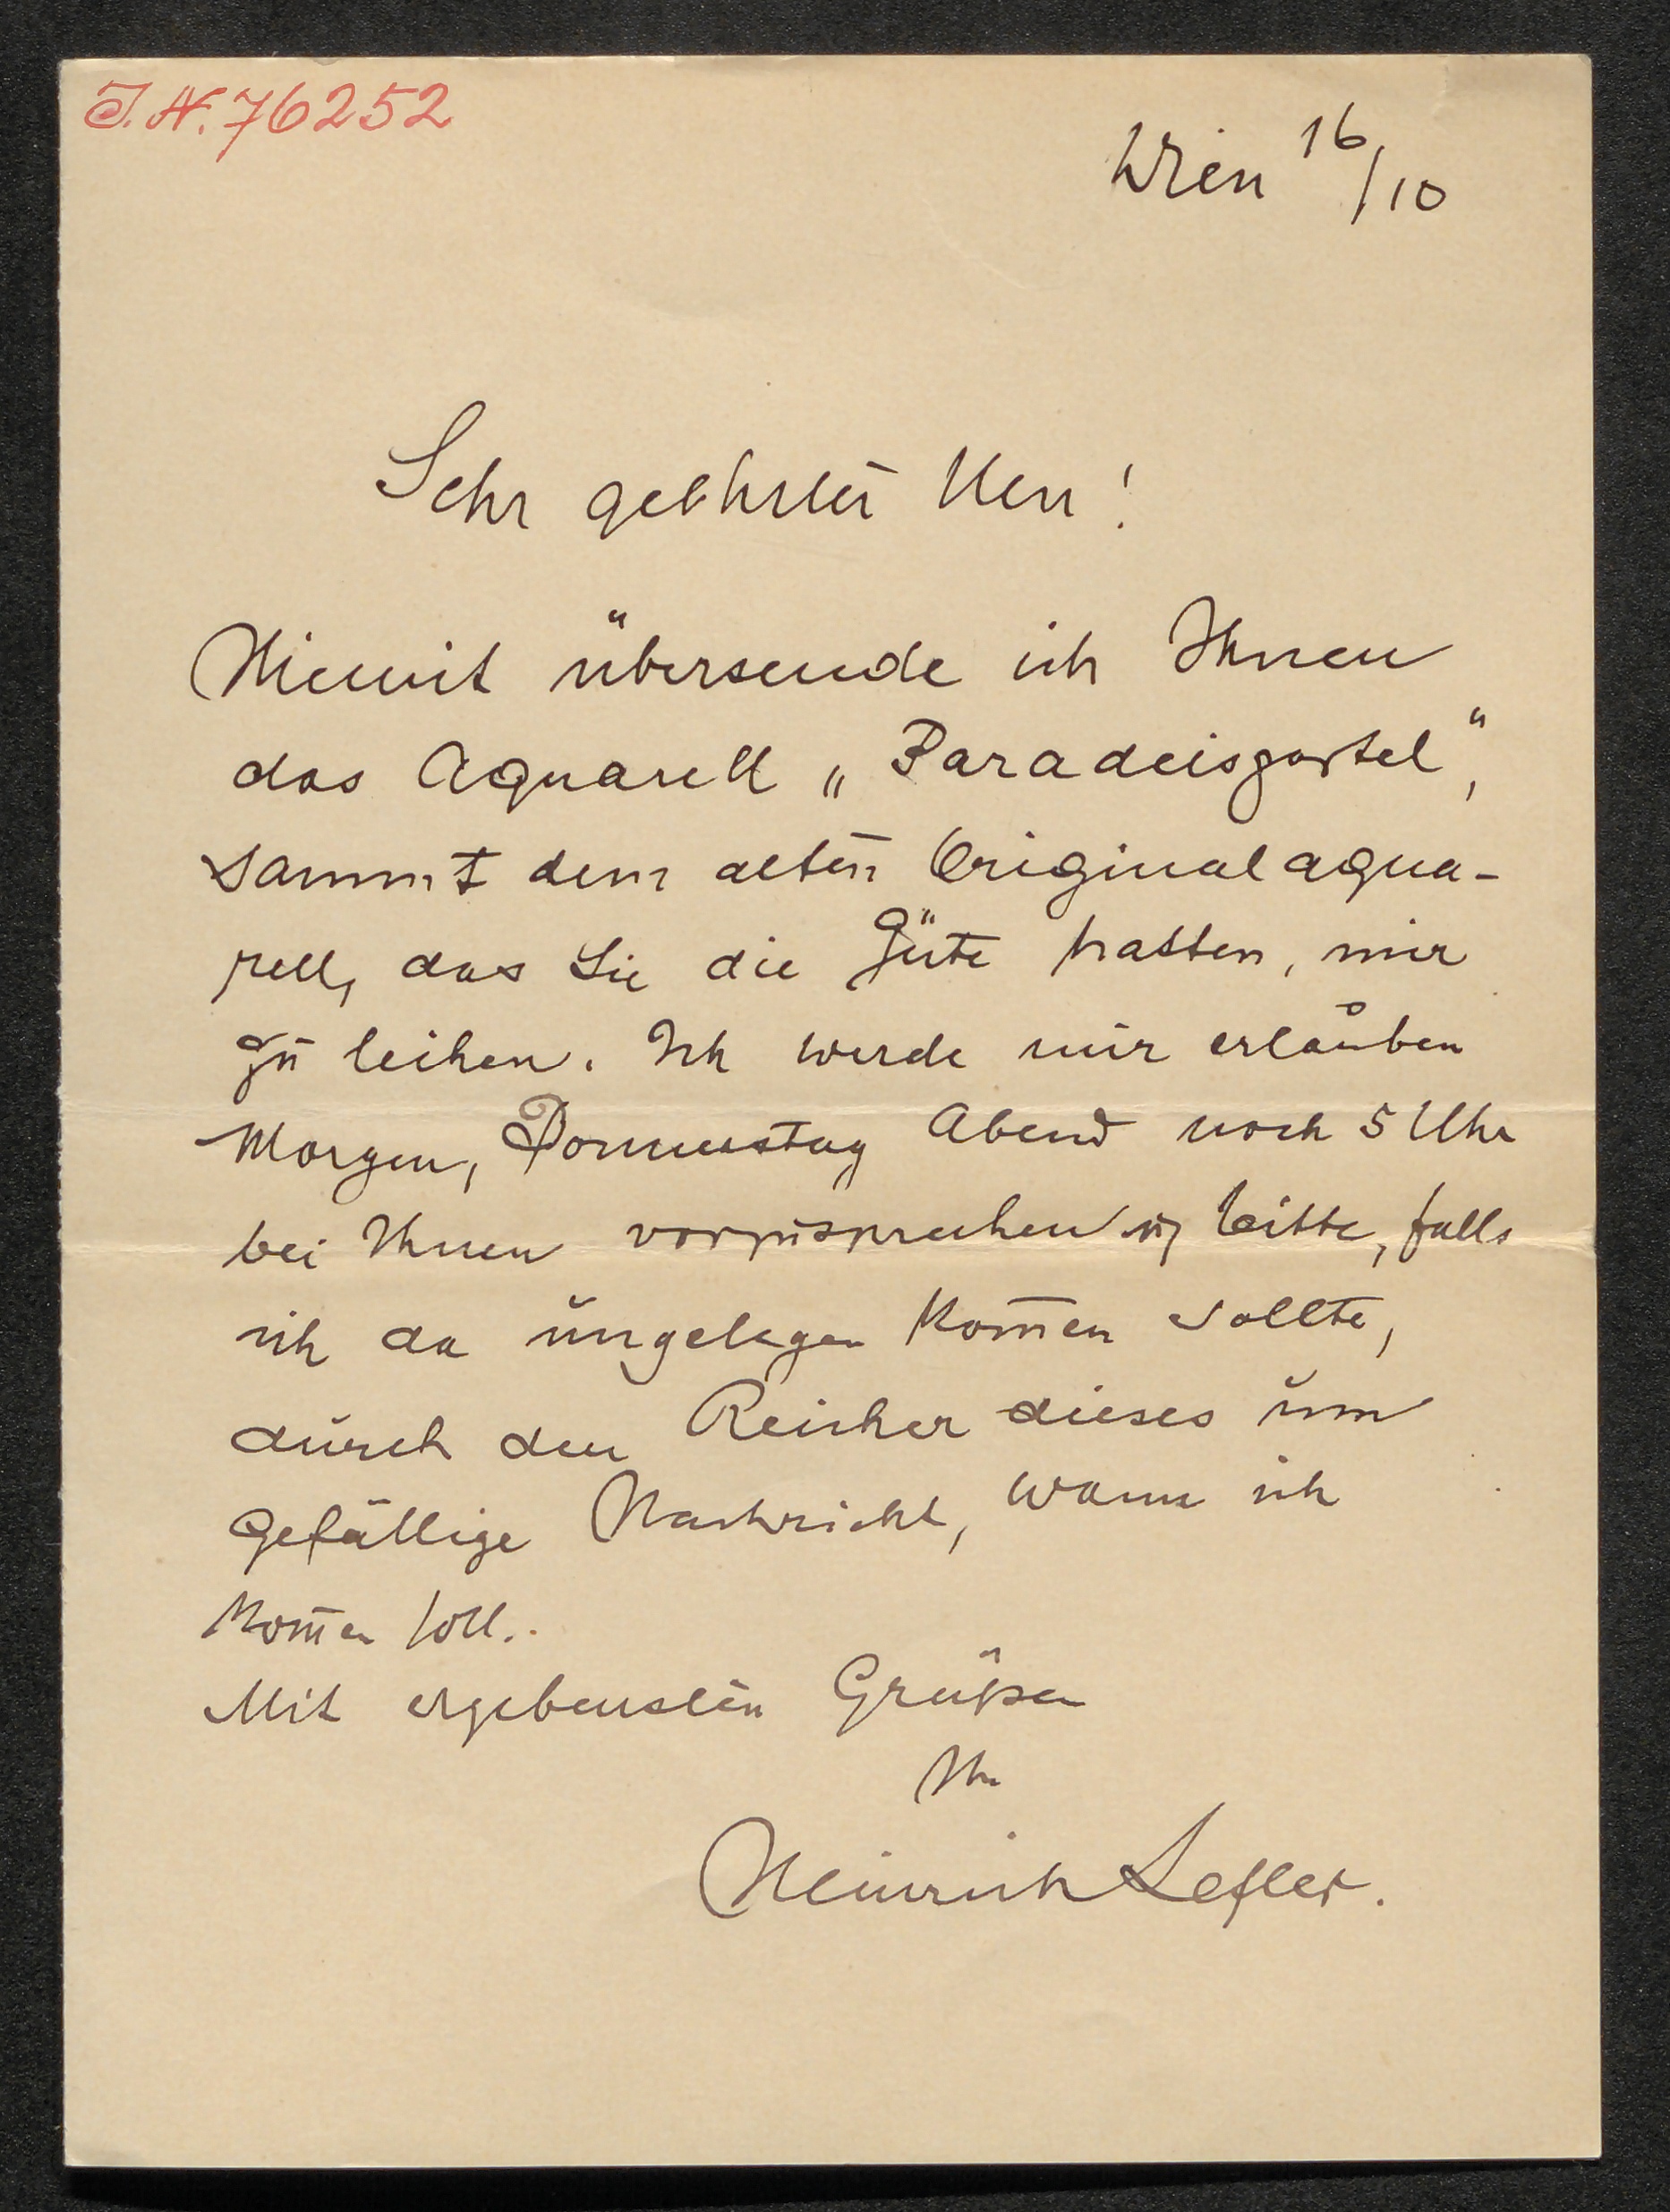 J.N. 76252
Wien 16/10
Sehr geehrter Herr!
Hiemit übersende ich Ihnen
das Aquarell „Paradeisgartel“,
sammt dem alten Originalaqua-
rell, das Sie die Güte hatten, mir
zu leihen. Ich werde mir erlauben
Morgen, Donnerstag Abend nach 5 Uhr
bei Ihnen vorzusprechen u bitte, falls
ich da ungelegen kom̅en sollte,
durch den Reicher dieses um
gefällige Nachricht, wann ich
kom̅en soll.
Mit ergebensten Grüßen
Ihr
Heinrich Lefler.